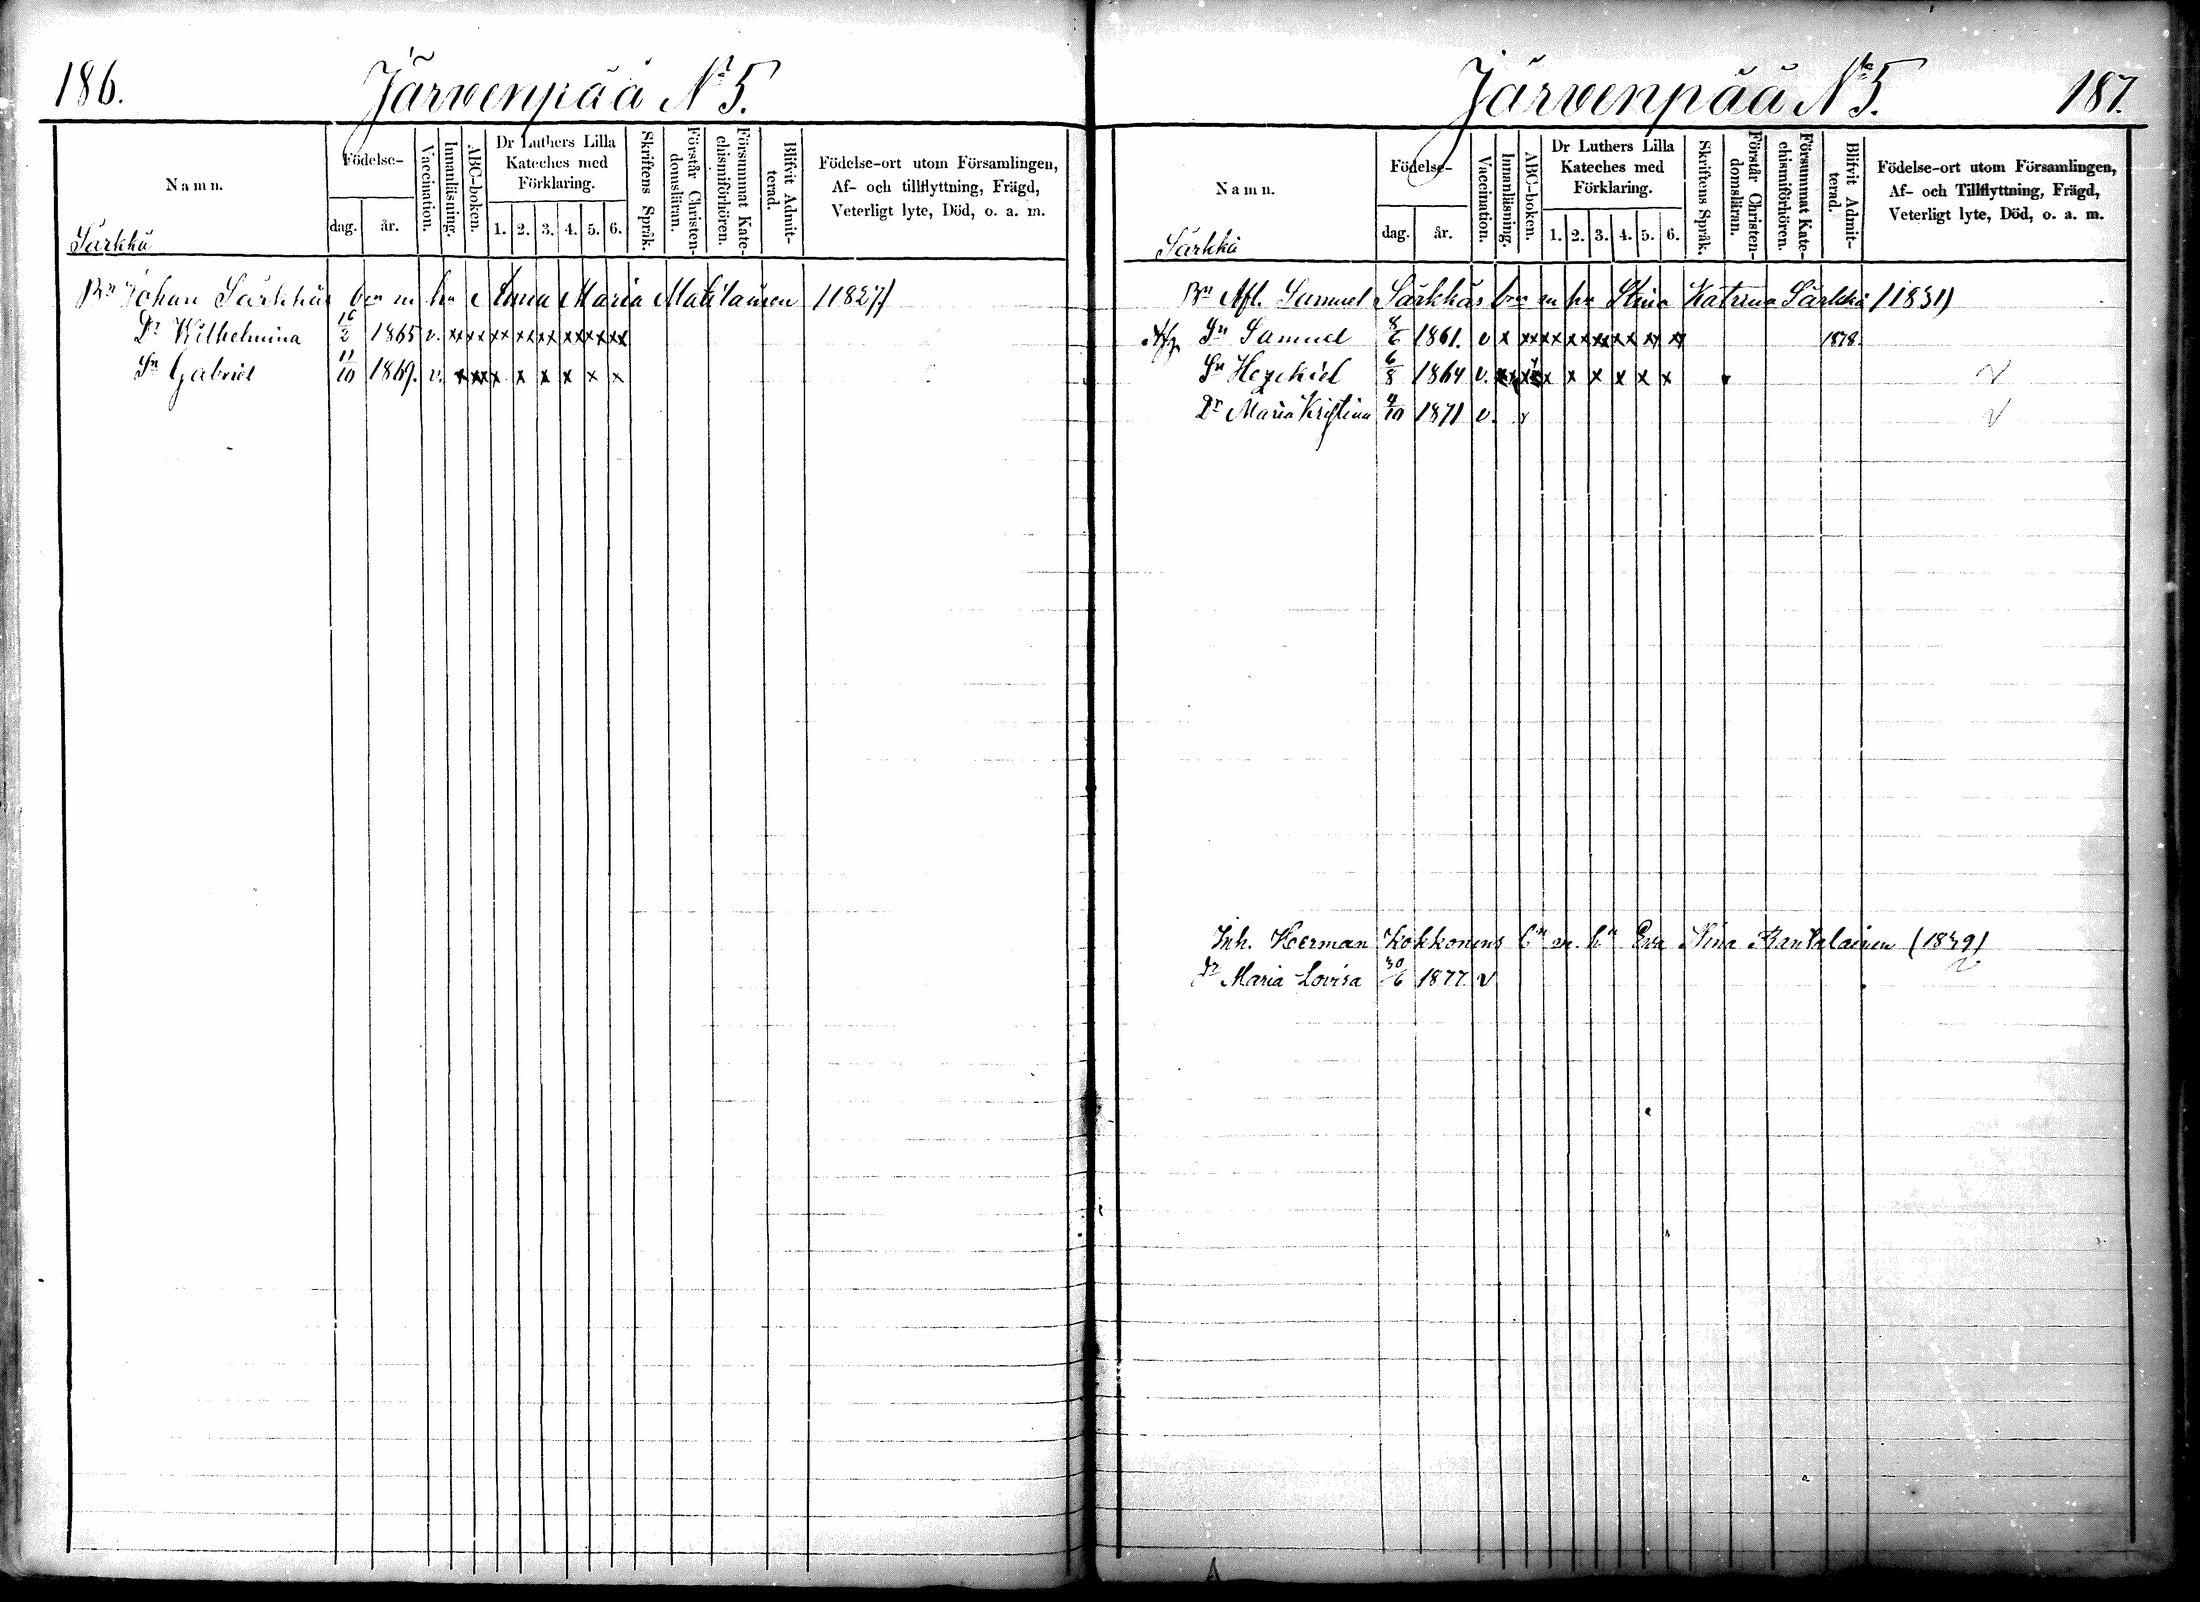 186.
Järvenpää No 5.
Namn.
Födelse-
dag.
år.
Vaccination.
Innanläsning.
ABC-boken.
Dr Luthers Lilla
Kateches med
Förklaring.
1. 2. 3. 4. 5. 6.
Skriftens Språk.
Förstår Christen-
domsläran.
Försummat Kate-
chismiförhören.
Blifvit Admit-
terad.
Födelse-ort utom Församlingen,
Af- och tillflyttning, Frägd,
Veterligt lyte, Död, o. a. m.
Särkkä
Bn Johan Särkkäs bn m hu Anna Maria Matilainen (1827)
Dr Wilhelmina 16/2 1865 v. x x x x x x x x x x x x x x x
Sn Gabriel 11/10 1869. v. x x x x x x x x x
Järvenpää No 5.
187.
Namn.
Födelse-
dag.
år.
Vaccination.
Innanläsning.
ABC-boken.
Dr Luthers Lilla
Kateches med
Förklaring.
1. 2. 3. 4. 5. 6.
Skriftens Språk.
Förstår Christen-
domsläran.
Försummat Kate-
chismiförhören.
Blifvit Admit-
terad.
Födelse-ort utom Församlingen,
Af- och Tillflyttning, Frägd,
Veterligt lyte, Död, o. a. m.
Särkkä
Bn Afl. Samuel Särkkäs bn m hu Stina Katrina Särkkä (1831)
Sn Samuel 8/6 1861. v x x x x x x x x x x x x x 1878.
Sn Hezekiel 6/8 1864 v. x x x x x x x x x v
Dr Maria Kristina 4/10 1871 v. x v
Inh. Herman Kokkonens bn m. hu Eva Stina Rantalainen (1849)
dr Maria Lovisa 30/6 1877 v v